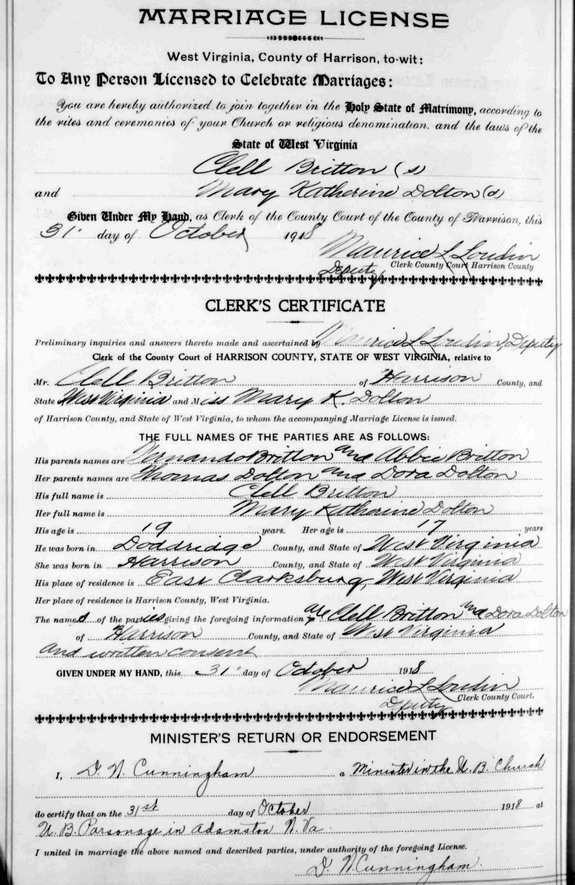 MARRIAGE LICENSE
West Virginia, County of Harrison, to-wit:
To Any Person Licensed to Celebrate Marriages:
You are hereby authorized to join together in the Holy State of Matrimony, according to
the rites and ceremonies of your Church or religious denomination, and the laws of the
State of West Virginia
Clell Britton (s)
and Mary Katherine Dolton (s)
Given Under My Hand, as Clerk of the County Court of the County of Harrison, this
31" day of October 1918
Maurice L Loudin
Deputy Clerk County Court Harrison County
CLERK'S CERTIFICATE
Preliminary inquiries and answers thereto made and ascertained by Maurice L Loudin, Deputy
Clerk of the County Court of HARRISON COUNTY, STATE OF WEST VIRGINIA, relative to
Mr. Clell Britton of Harrison County, and
State West Virginia and Miss Mary K. Dolton
of Harrison County, and State of West Virginia, to whom the accompanying Marriage License is issued.
THE FULL NAMES OF THE PARTIES ARE AS FOLLOWS:
His parents names are Britton and Abbie Britton
Her parents names are Thomas Dolton and Dora Dolton
His full name is Clell Britton
Her full name is Mary Katherine Dolton
His age is 19 years. Her age is 17 years
He was born in Doddridge County, and State of West Virginia
She was born in Harrison County, and State of West Virginia
His place of residence is East Clarksburg, West Virginia
Her place of residence is Harrison County, West Virginia.
The names of the parties giving the foregoing information are Clell Britton and Dora Dolton
of Harrison County, and State of West Virginia
and written consent
GIVEN UNDER MY HAND, this 31" day of October 1918
Maurice L Loudin
Deputy Clerk County Court.
MINISTER'S RETURN OR ENDORSEMENT
I, D. N. Cunningham a Minister in the U. B. Church
do certify that on the 31st day of October 1918 at
U. B. Parsonage in Adamston W. Va.
I united in marriage the above named and described parties, under authority of the foregoing License.
D. N. Cunningham.